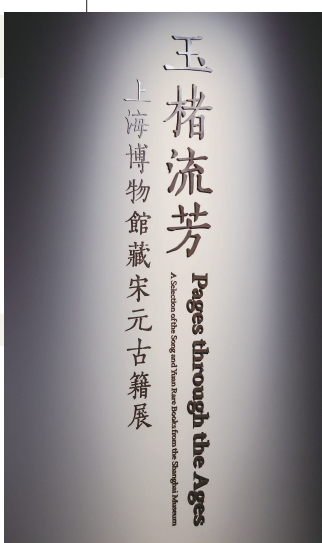 玉楮流芳
上海博物館藏宋元古籍展
Pages through the Ages
A Selection of the Song and Yuan Rare Books from the Shanghai Museum